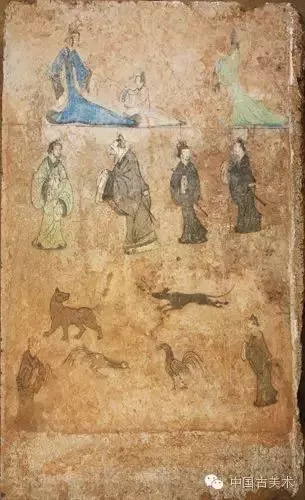 中国古美术